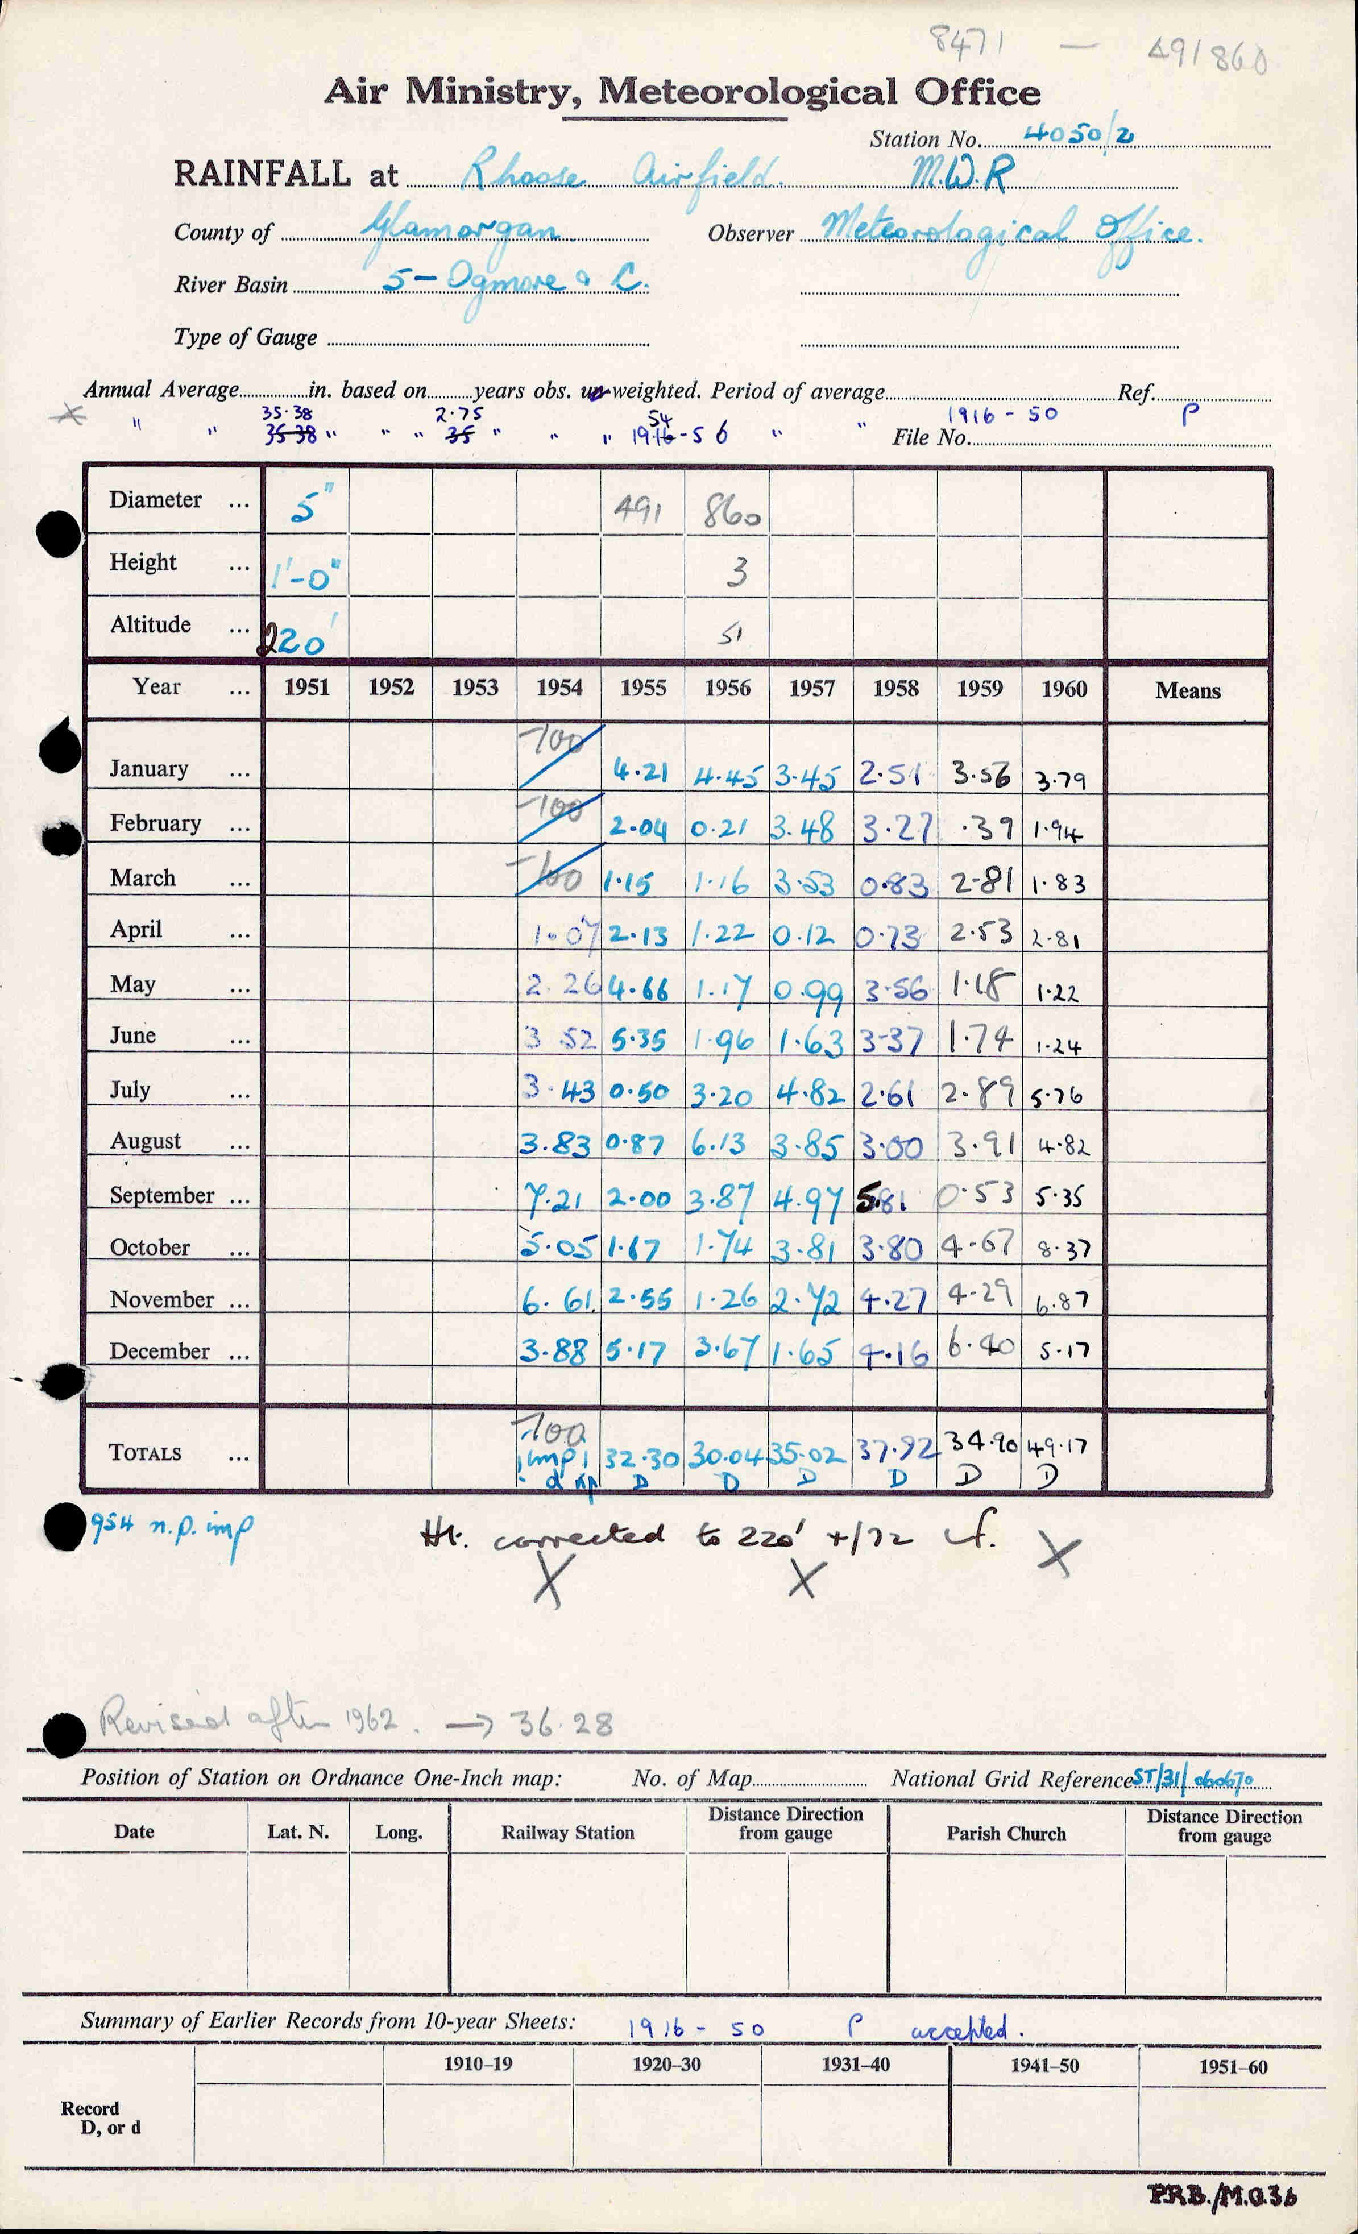 8471 — 491860
Air Ministry, Meteorological Office
Station No. 4050/2
RAINFALL at Rhoose Airfield. M.W.R
County of Glamorgan Observer Meteorological Office.
River Basin 5- Ogmore & C.
Type of Gauge
Annual Average in. based on years obs. un-weighted. Period of average Ref.
35.38 2.75 54 1916 - 50 P
" " 35.38 " " " 35 " " " 1916-56 " " File No.
Diameter ... 5" 491 860
Height ... 1'-0" 3
Altitude ... 220' 51
Year ... 1951 1952 1953 1954 1955 1956 1957 1958 1959 1960 Means
January ... -100 4.21 4.45 3.45 2.51 3.56 3.79
February ... -100 2.04 0.21 3.48 3.27 .39 1.94
March ... -100 1.15 1.16 3.53 0.83 2.81 1.83
April ... 1.07 2.13 1.22 0.12 0.73 2.53 2.81
May ... 2.26 4.66 1.17 0.99 3.56 1.18 1.22
June ... 3 52 5.35 1.96 1.63 3.37 1.74 1.24
July ... 3.43 0.50 3.20 4.82 2.61 2.89 5.76
August ... 3.83 0.87 6.13 3.85 3.00 3.91 4.82
September ... 7.21 2.00 3.87 4.97 5.81 0.53 5.35
October ... 5.05 1.67 1.74 3.81 3.80 4.67 8.37
November ... 6.61 2.55 1.26 2.72 4.27 4.29 6.87
December ... 3.88 5.17 3.67 1.65 4.16 6.40 5.17
-100
TOTALS ... imp 32.30 30.04 35.02 37.92 34.90 49.17
D D D D D D
954 n.p. imp Ht. corrected to 220' 4/72 X
X X
Revised after 1962. → 36.28
Position of Station on Ordnance One-Inch map: No. of Map National Grid Reference ST/31/060670
Date Lat. N. Long. Railway Station Distance Direction from gauge Parish Church Distance Direction from gauge
Summary of Earlier Records from 10-year Sheets: 1916 - 50 P accepted.
1910–19 1920–30 1931–40 1941–50 1951–60
Record
D, or d
P.R.B./M.O.36